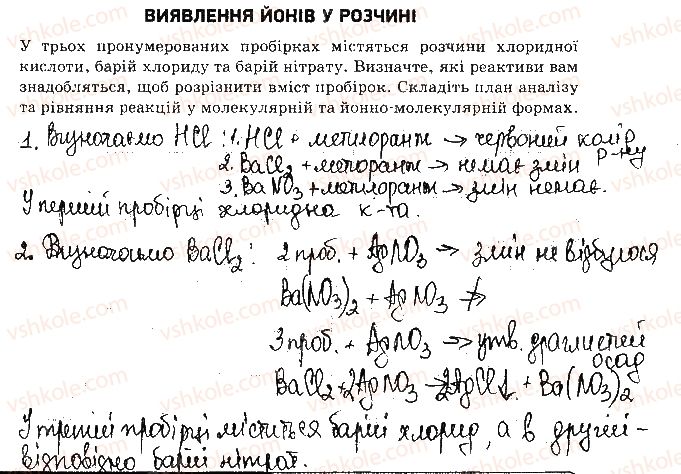 ВИЯВЛЕННЯ ЙОНІВ У РОЗЧИНІ
У трьох пронумерованих пробірках містяться розчини хлоридної
кислоти, барій хлориду та барій нітрату. Визначте, які реактиви вам
знадобляться, щоб розрізнити вміст пробірок. Складіть план аналізу
та рівняння реакцій у молекулярній та йонно-молекулярній формах.
1. Визначаємо HCl : 1. HCl + метилоранж → червоний колір
р-ну
2. BaCl2 + метлоранж → немає змін
3. BaNO3 + метилоранж → змін немає.
У першій пробірці хлоридна к-та.
2. Визначаємо BaCl2 : 2 проб. + AgNO3 → змін не відбулося
Ba(NO3)2 + AgNO3 ↛
3 проб. + AgNO3 → утв. драглистий
осад
BaCl2 + 2AgNO3 → 2AgCl↓ + Ba(NO3)2
У третій пробірці міститься барій хлорид, а в другій -
відповідно барій нітрат.
vshkole.com